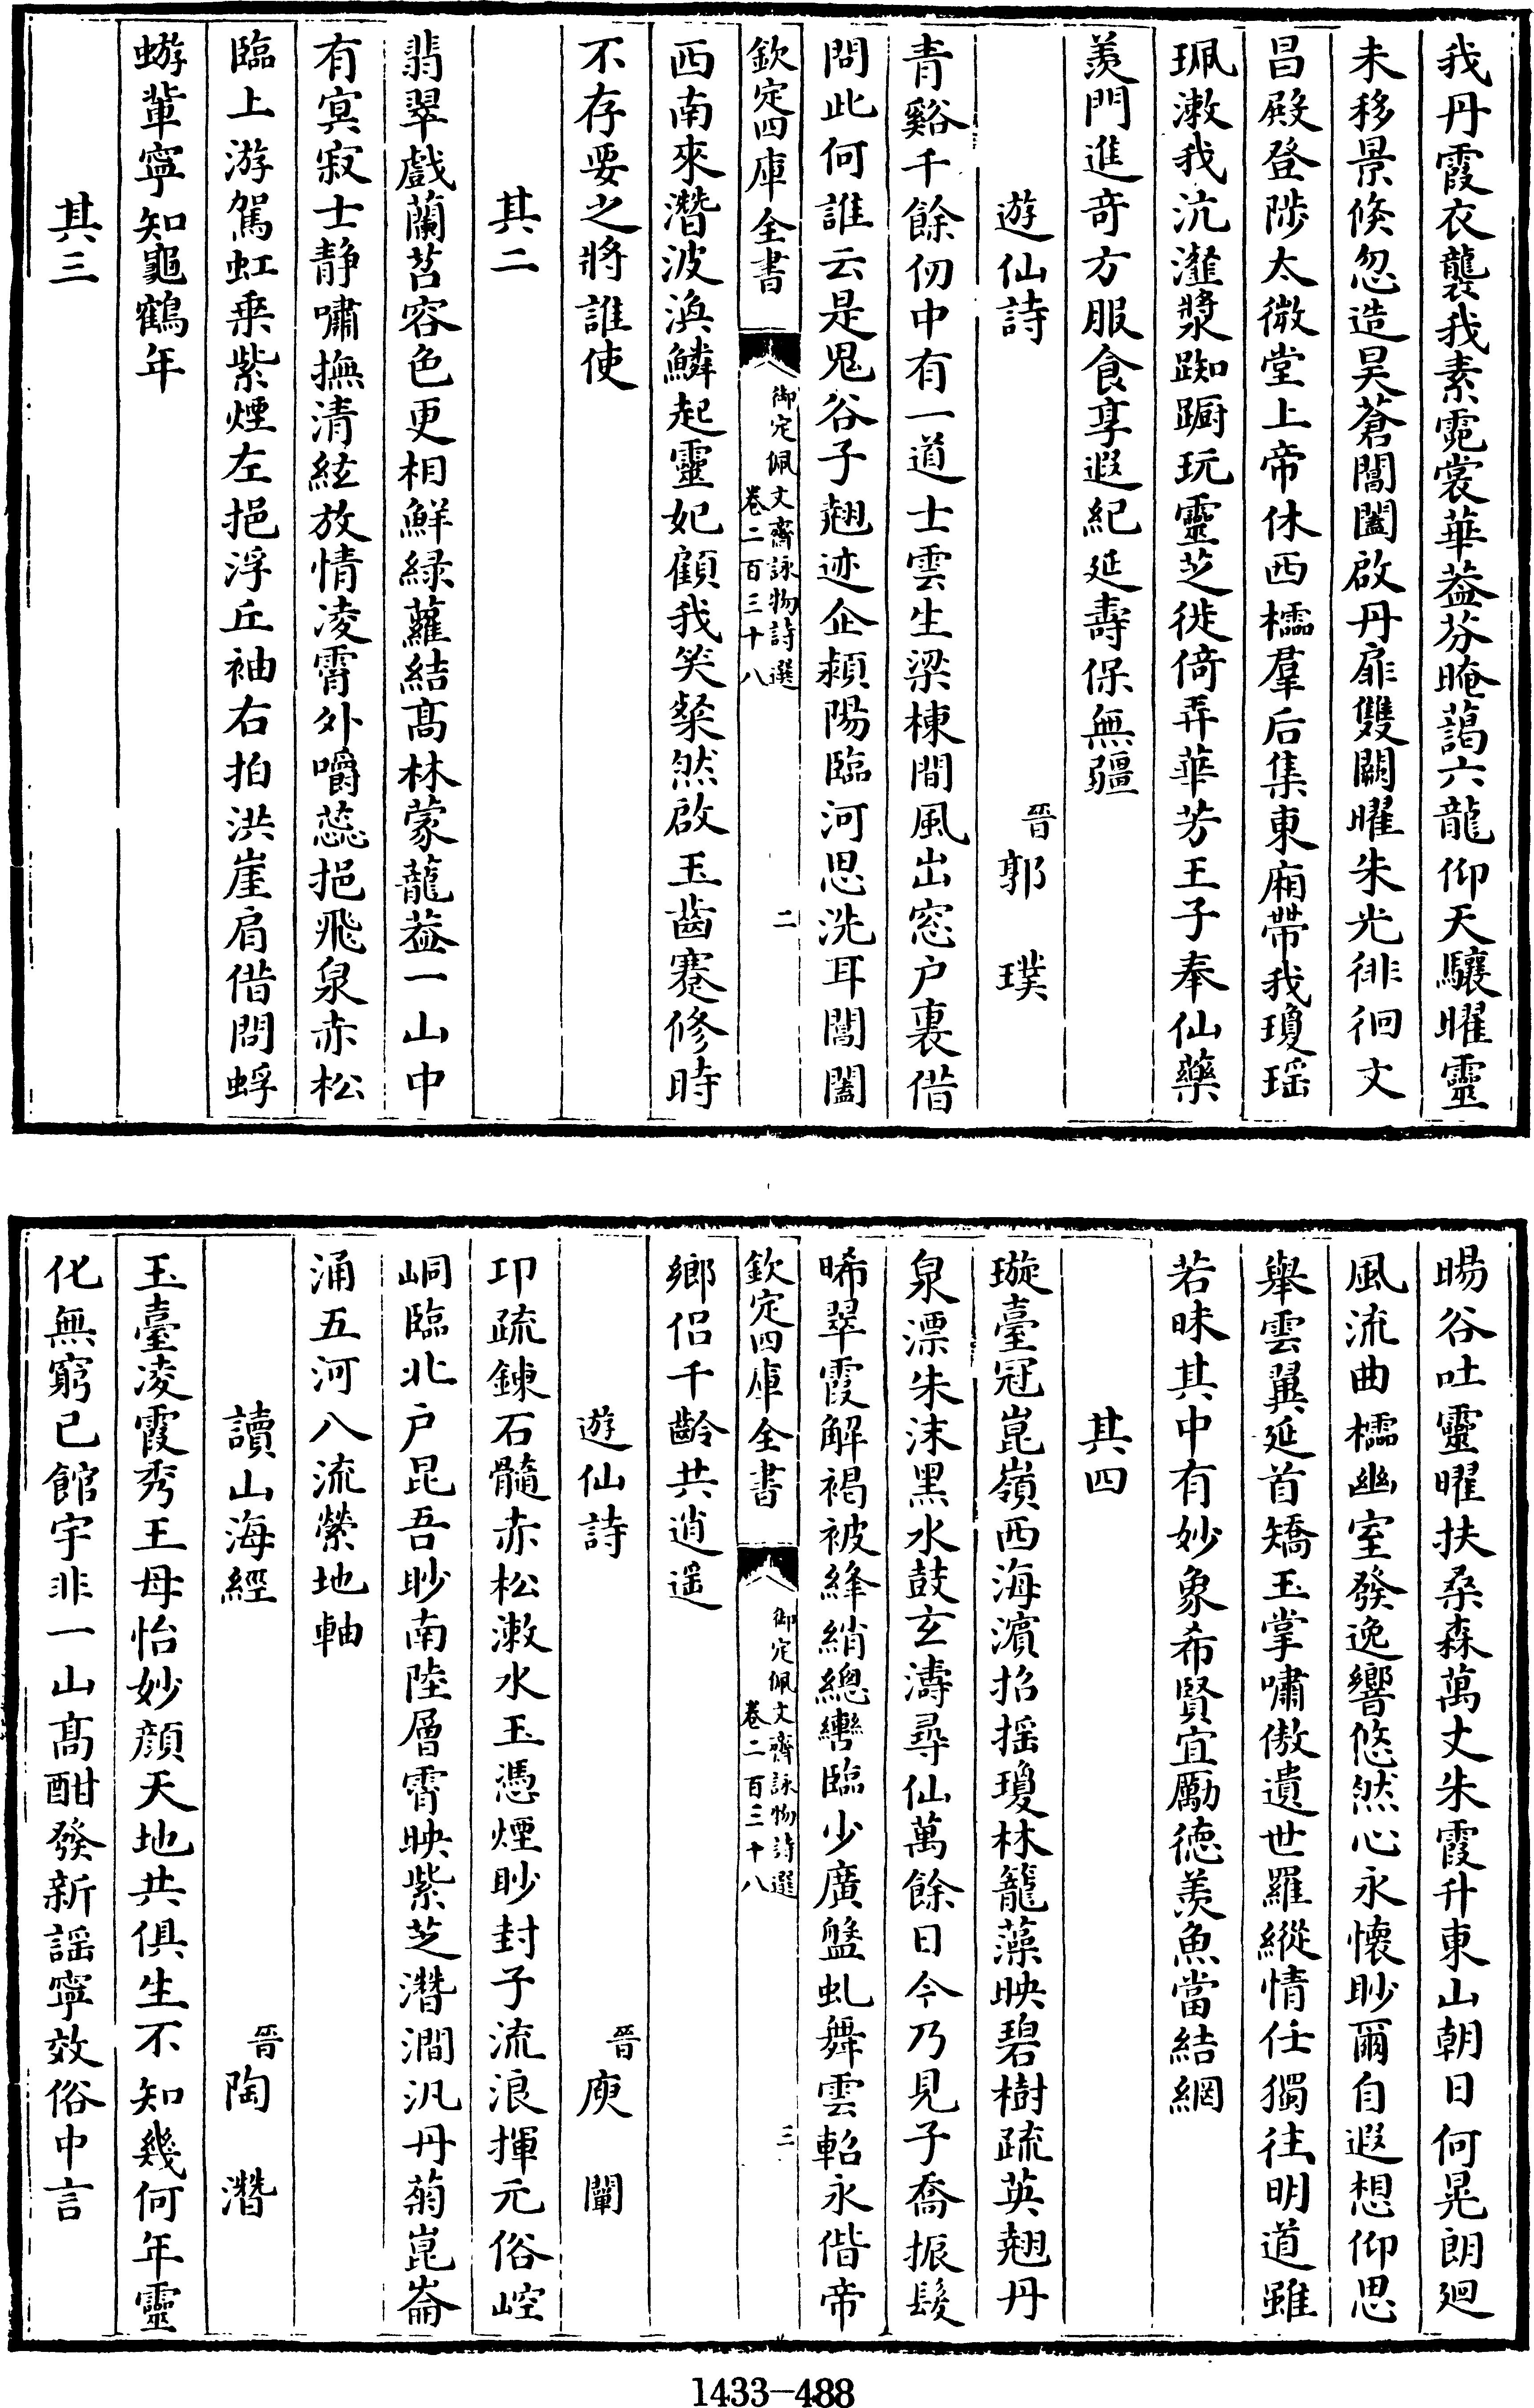 我丹霞衣襲我素霓裳華葢芬晻藹六龍仰天驤曜靈
未移景倐忽造昊蒼閶闔啟丹扉雙闕曜朱光徘徊文
昌殿登陟太微堂上帝休西櫺羣后集東廂帶我瓊瑤
珮漱我沆瀣漿踟蹰玩靈芝徙倚弄華芳王子奉仙藥
羨門進奇方服食享遐紀延壽保無疆
遊仙詩　晉郭璞
青谿千餘仞中有一道士雲生梁棟間風出窓户裏借
問此何誰云是鬼谷子翹迹企潁陽臨河思洗耳閶闔
欽定四庫全書　御定佩文齋詠物詩選　卷二百三十八　二
西南來潛波渙鱗起靈妃顧我笑粲然啟玉齒蹇修時
不存要之將誰使
其二
翡翠戲蘭苕容色更相鮮緑蘿結髙林蒙蘢葢一山中
有㝠寂士静嘯撫清絃放情凌霄外嚼蕊挹飛泉赤松
臨上游駕虹乘紫煙左挹浮丘袖右拍洪崖肩借問蜉
蝣輩寧知龜鶴年
其三
暘谷吐靈曜扶桑森萬丈朱霞升東山朝日何晃朗廻
風流曲櫺幽室發逸響悠然心永懷眇爾自遐想仰思
舉雲翼延首矯玉掌嘯傲遺世羅縱情任獨往明道雖
若昧其中有妙象希賢宜勵徳羨魚當結網
其四
璇臺冠崑嶺西海濵招揺瓊林籠藻映碧樹疏英翹丹
泉漂朱沫黑水鼓玄濤尋仙萬餘日今乃見子喬振髮
晞翠霞解褐被絳綃總轡臨少廣盤虬舞雲軺永偕帝
欽定四庫全書　御定佩文齋詠物詩選　卷二百三十八　三
鄉侣千齡共逍遥
遊仙詩　晉庾闡
卭疏鍊石髓赤松漱水玉憑煙眇封子流浪揮元俗崆
峒臨北户昆吾眇南陸層霄映紫芝潛澗汎丹菊崑崙
涌五河八流縈地軸
讀山海經　晉陶潛
玉臺凌霞秀王母怡妙顔天地共俱生不知幾何年靈
化無窮已館宇非一山髙酣發新謡寧效俗中言
1433-488